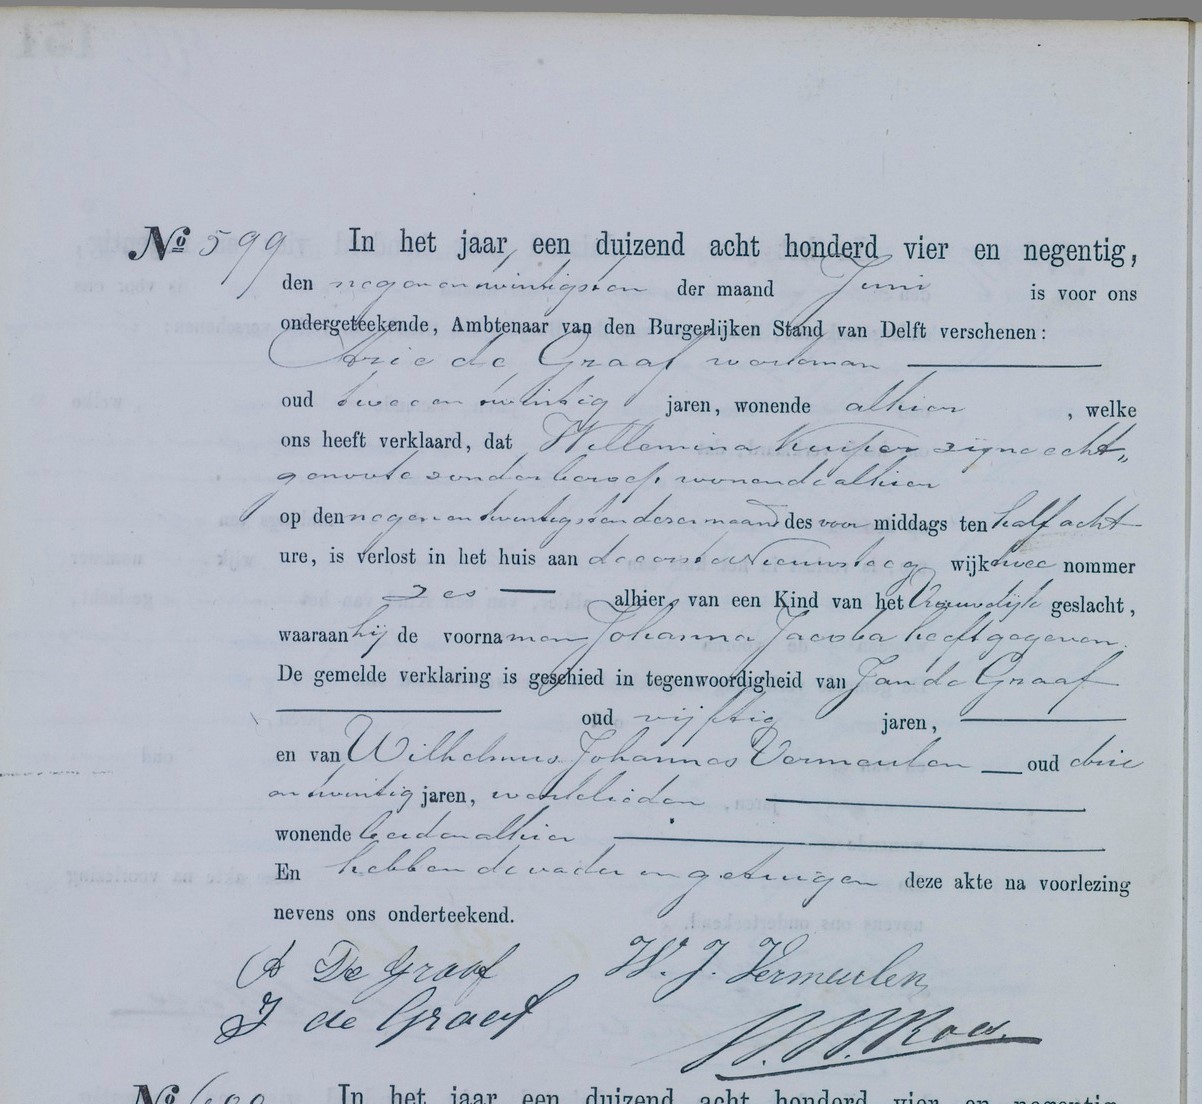 No 599 In het jaar een duizend acht honderd vier en negentig,
den negenentwintigsten der maand Juni is voor ons
ondergeteekende, Ambtenaar van den Burgerlijken Stand van Delft verschenen:
Arie de Graaf werkman
oud tweeentwintig jaren, wonende alhier , welke
ons heeft verklaard, dat Willemina Kuiper zijne echt„
genoote zonder beroep, wonende alhier
op den negenentwintigsten dezer maand des voor middags ten half acht
ure, is verlost in het huis aan de eerste Nieuwsteeg wijk twee nommer
zes alhier, van een Kind van het Vrouwelijk geslacht,
waaraan hij de voornamen Johanna Jacoba heeft gegeven.
De gemelde verklaring is geschied in tegenwoordigheid van Jan de Graaf
oud vijftig jaren,
en van Wilhelmus Johannes Vermeulen oud drie
entwintig jaren, werklieden
wonende beiden alhier
En hebben de vader en getuigen deze akte na voorlezing
nevens ons onderteekend.
A De Graaf W. J. Vermeulen
J de Graaf
No 600 In het jaar een duizend acht honderd vier en negentig